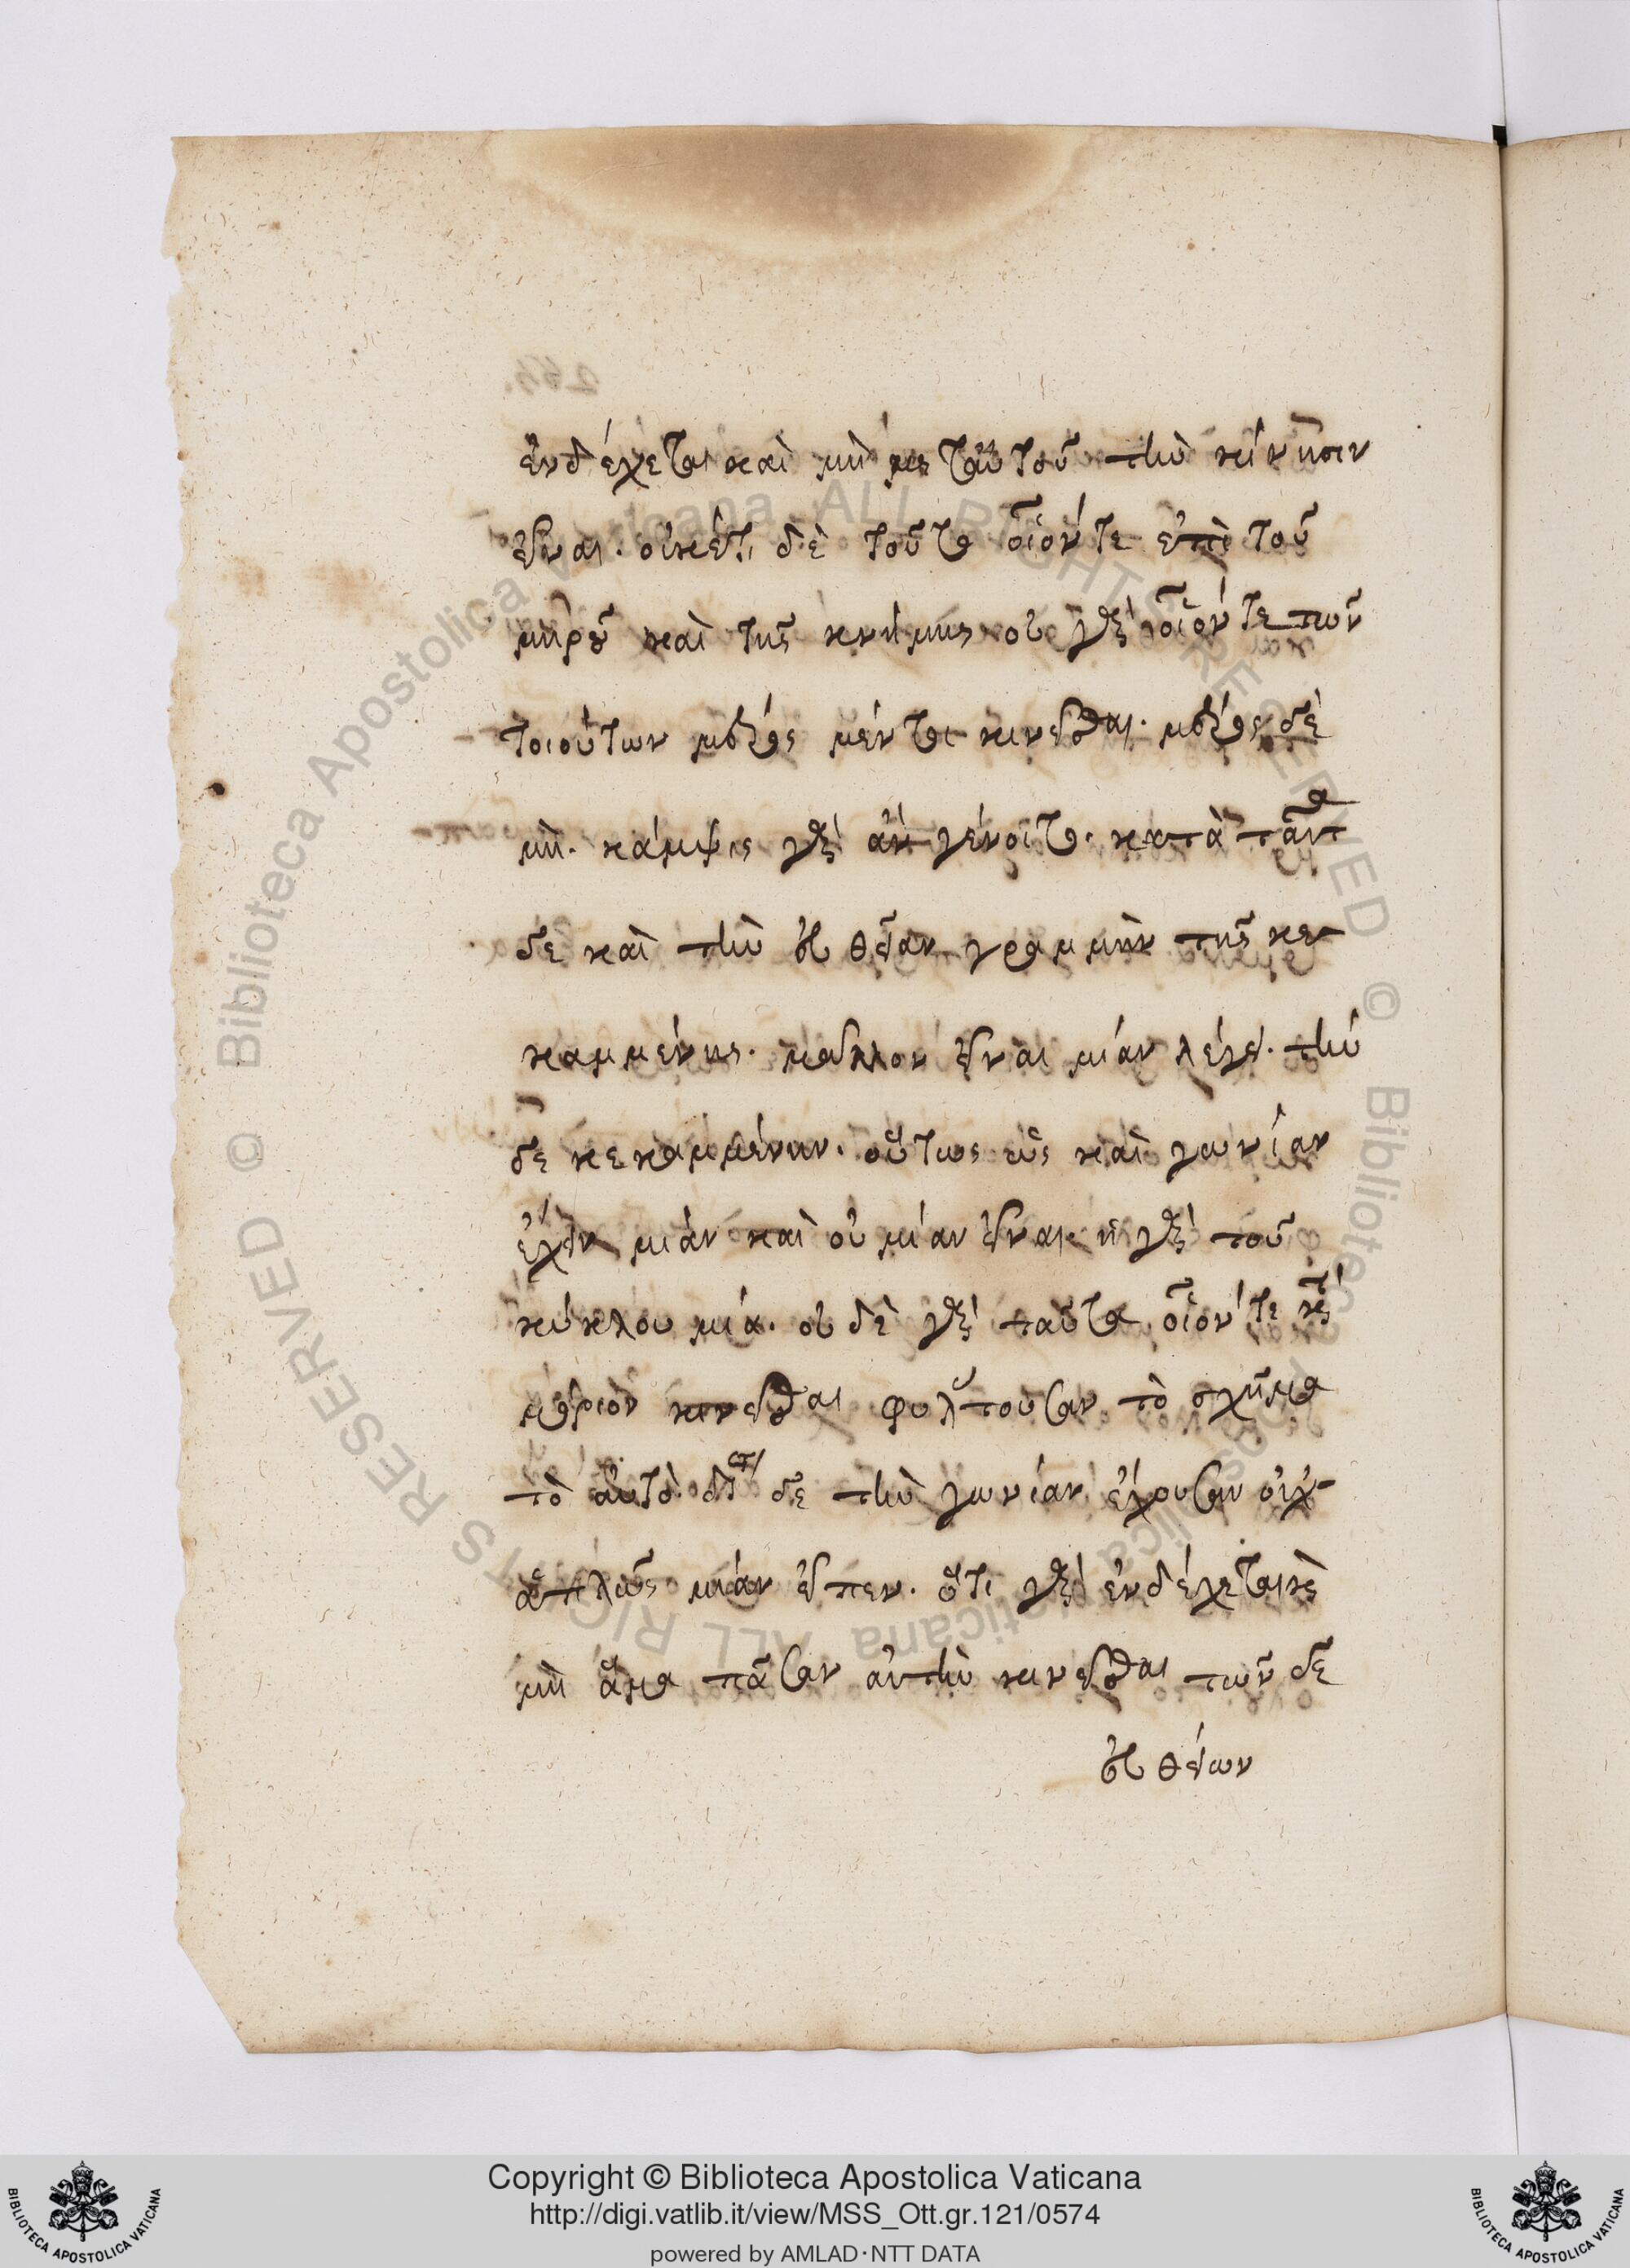 ἐνδέχεται καὶ μὴ μεταὐτοῦ τὴν κίνησιν
εἶναι. οὐκέτι δὲ τοῦτο οἷόντε ἐπὶ τοῦ
μηροῦ καὶ τῆς κνήμης οὐ γὰρ οἷόντε τῶν
τοιούτων μέρος μέντοι κινεῖσθαι. μέρος δὲ
μή. κάμψις γὰρ ἂν γένοιτο. κατὰ ταῦτα
δὲ καὶ τὴν εὐθεῖαν γραμμὴν τῆς κε-
καμμένης. μᾶλλον εἶναι μίαν λέγει. τὴν
δὲ κεκαμμένην. οὕτως ὡς καὶ γωνίαν
ἔχειν μίαν καὶ οὐ μίαν εἶναι ἡ γὰρ τοῦ
κύκλου μία. οὐδὲ γὰρ ταύτα οἷόντε κατὰ
μόριον κινεῖσθαι φυλάττουσαν τὸ σχῆμα
τὸ αὐτὸ. διὰ δὲ τὴν γωνίαν ἔχουσαν οὐχ
ἁπλῶς μίαν εἶπεν. ὅτι γὰρ ἐνδέχεται καὶ
μὴ ἅμα πᾶσαν αὐτὴν κινεῖσθαι τῶν δὲ
εὐθείων
Copyright © Biblioteca Apostolica Vaticana
http://digi.vatlib.it/view/MSS_Ott.gr.121/0574
powered by AMLAD·NTT DATA
BIBLIOTECA APOSTOLICA VATICANA
BIBLIOTECA APOSTOLICA VATICANA
© Biblioteca Apostolica Vaticana ALL RIGHTS RESERVED
© Biblioteca Apostolica Vaticana ALL RIGHTS RESERVED